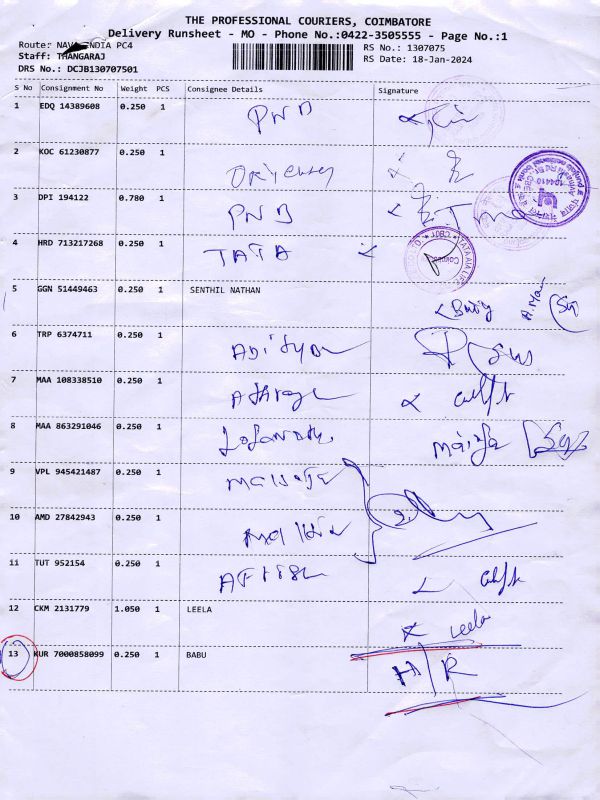 THE PROFESSIONAL COURIERS, COIMBATORE
Delivery Runsheet - MO - Phone No.:0422-3505555 - Page No.:1
Route: NAVA INDIA PC4
RS No.: 1307075
Staff: THANGARAJ
RS Date: 18-Jan-2024
DRS No.: DCJB130707501
S No Consignment No Weight PCS Consignee Details Signature
1 EDQ 14389608 0.250 1 PNB
2 KOC 61230877 0.250 1
3 DPI 194122 0.780 1 PNB
4 HRD 713217268 0.250 1 TATA
5 GGN 51449463 0.250 1 SENTHIL NATHAN
6 TRP 6374711 0.250 1
7 MAA 108338510 0.250 1
8 MAA 863291046 0.250 1
9 VPL 945421487 0.250 1
10 AMD 27842943 0.250 1
11 TUT 952154 0.250 1
12 CKM 2131779 1.050 1 LEELA Leela
13 KUR 7000858099 0.250 1 BABU H/R